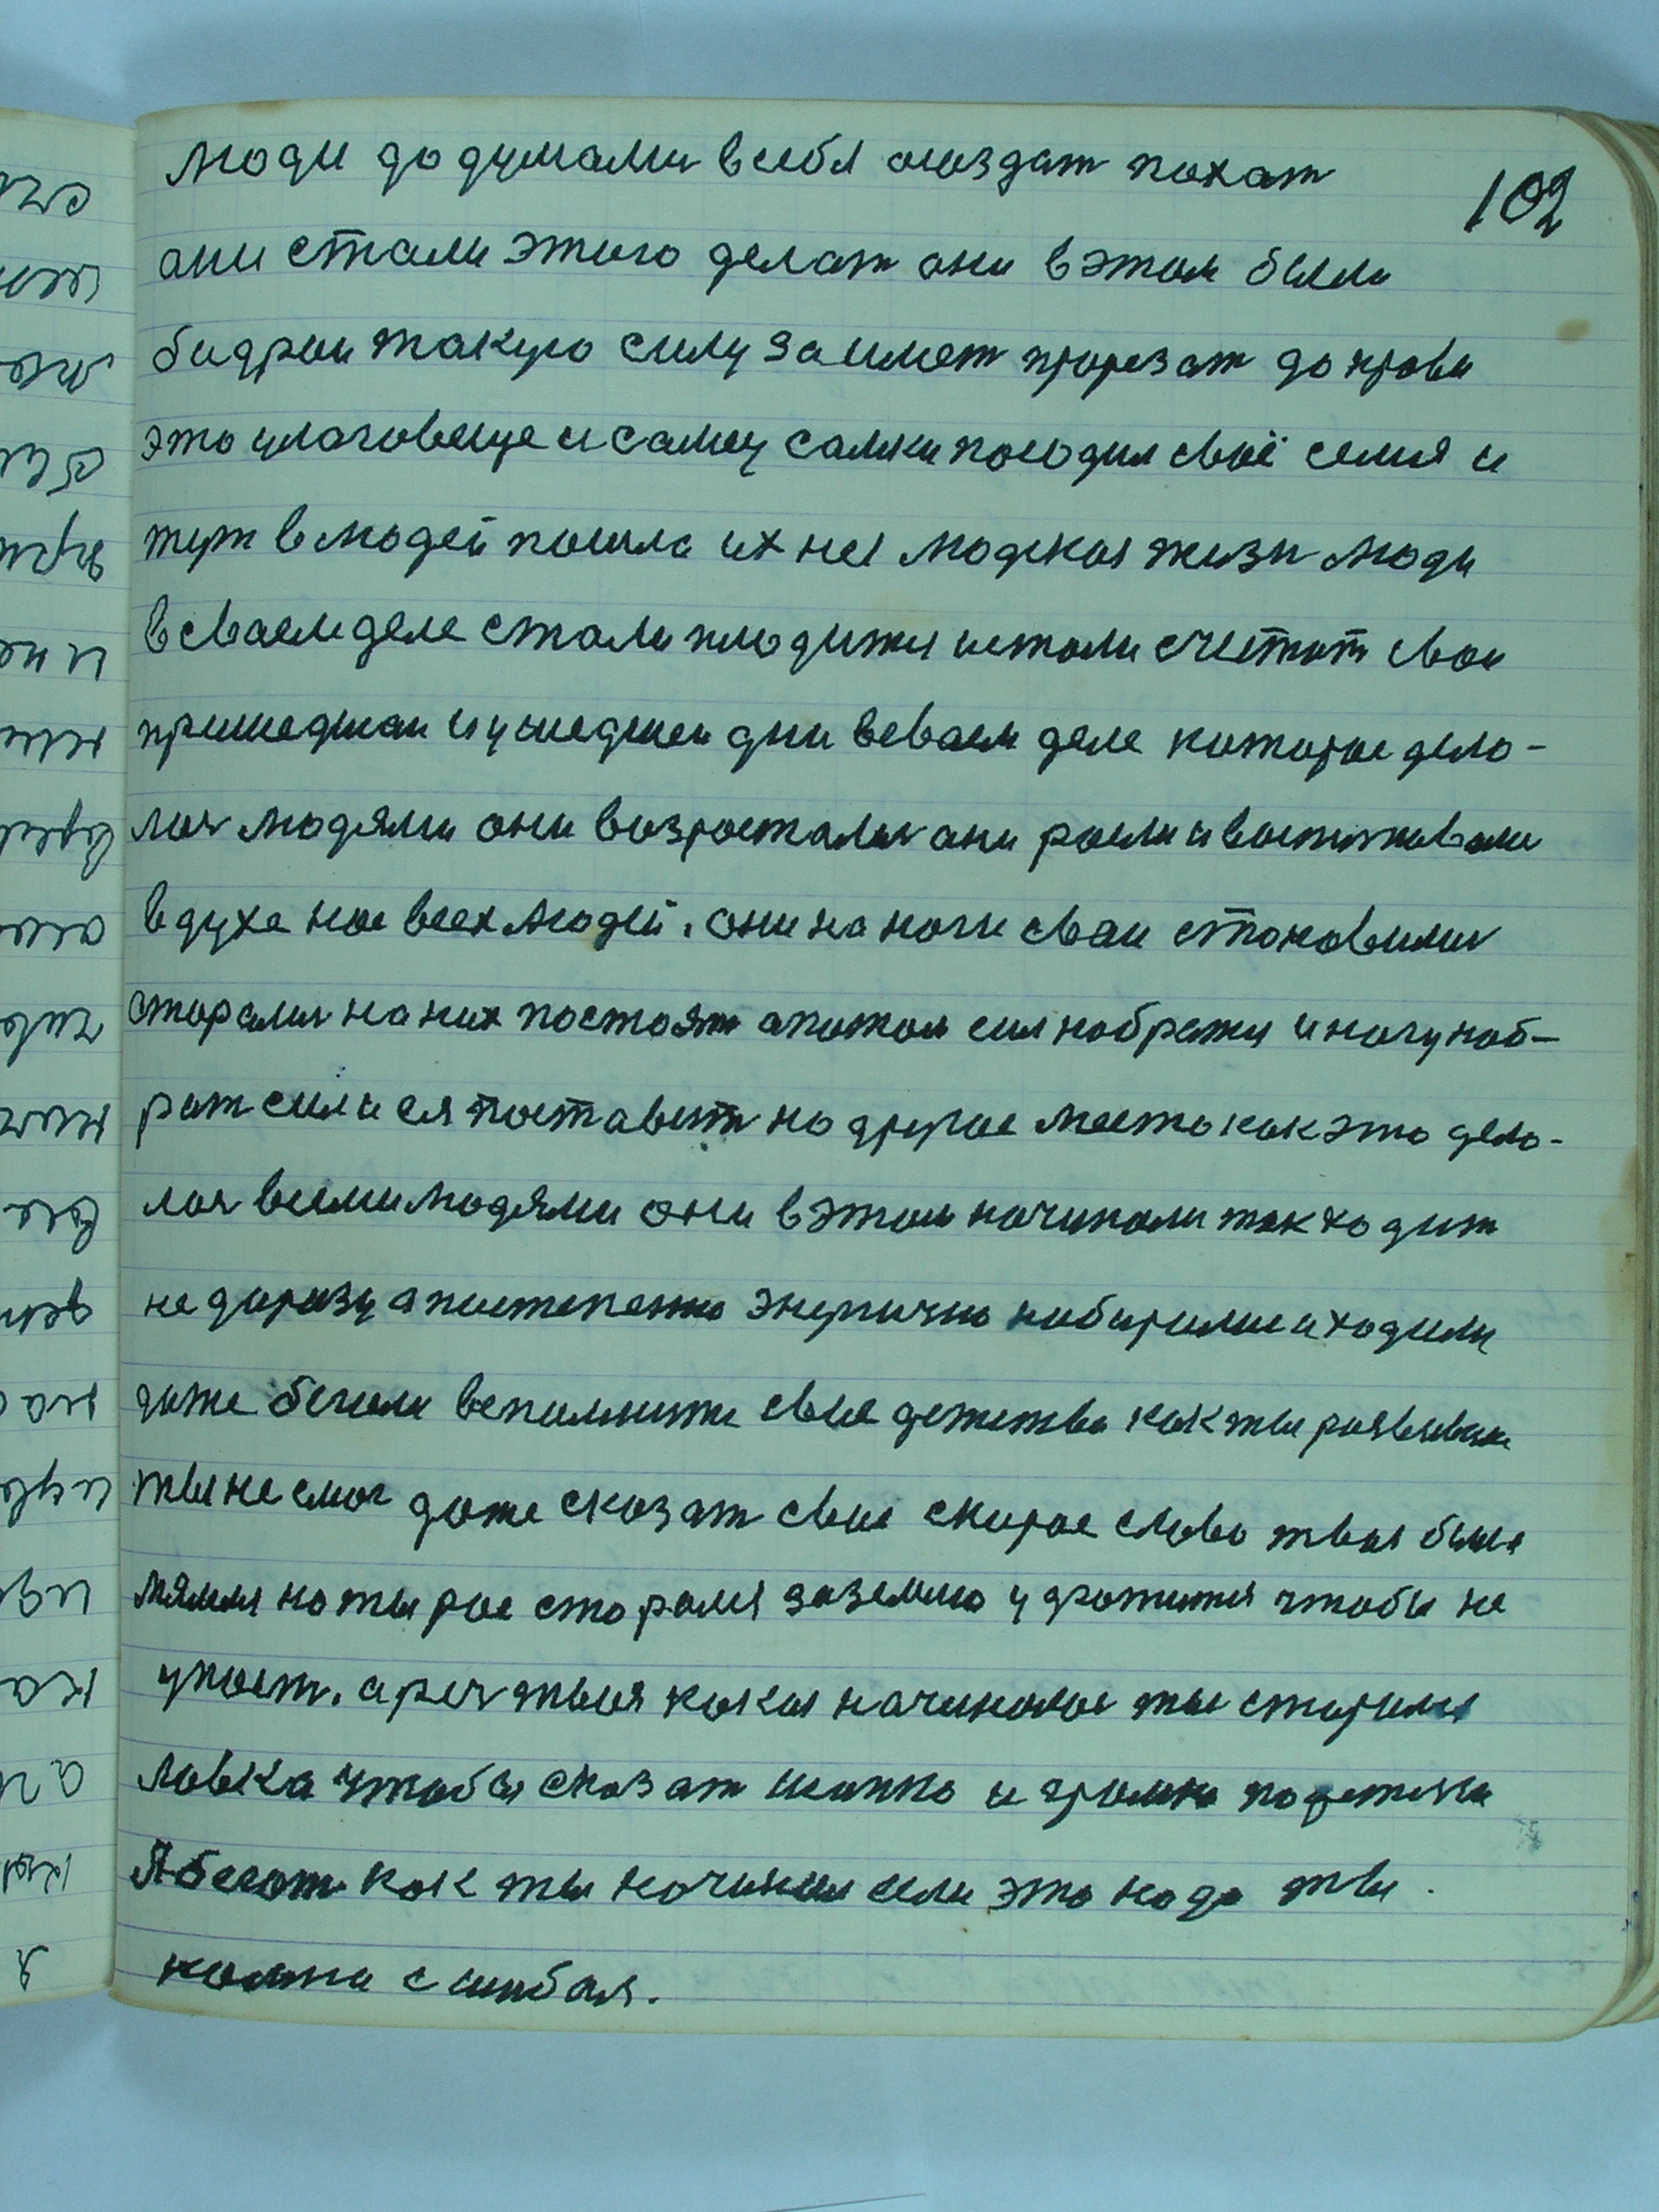 102
люди до думали в себя создат похат
они стали этого делат они в этом были
бидрои такую силу заимет прорезат до крови
это цлаговеще и самец самки посодил своё семя и
тут в людей пошла их не людская жизн люди
в сваем деле стали плодится и стали считат свои
пришедшаи и ушедшеи дни в сваем деле которое дела-
лос людями они возростали они росли и воспитовали
в духе нос всех людей. они на ноги сваи становилис
старалис на них постоят а потом сил набратся и ногу наб-
рат сили ея поставит на другое место как это дела-
лос всеми людями они в этом начинали так ходит
не доразу а постепено энергично набирали и ходили
даже бегали вспомните свое детства как ты
ты не смог даже сказат свое скорое слово твоя была
на ты рос старался за землю удротится чтобы не
упаст. а реч твоя какая начиналос ты старался
ловка чтобы сказат и громко по детячи
как ты начинал если это надо ты